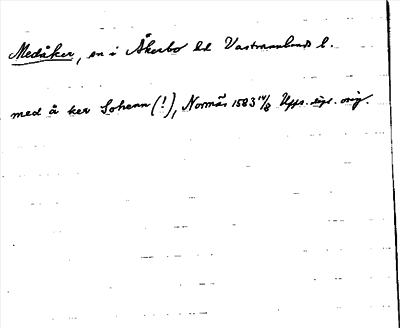 Medåker, sn i Åkerbo hd Västmanlands l.
med å ker Sohenn (!), Normås 1583 14/8 Upps. eccl. orig.